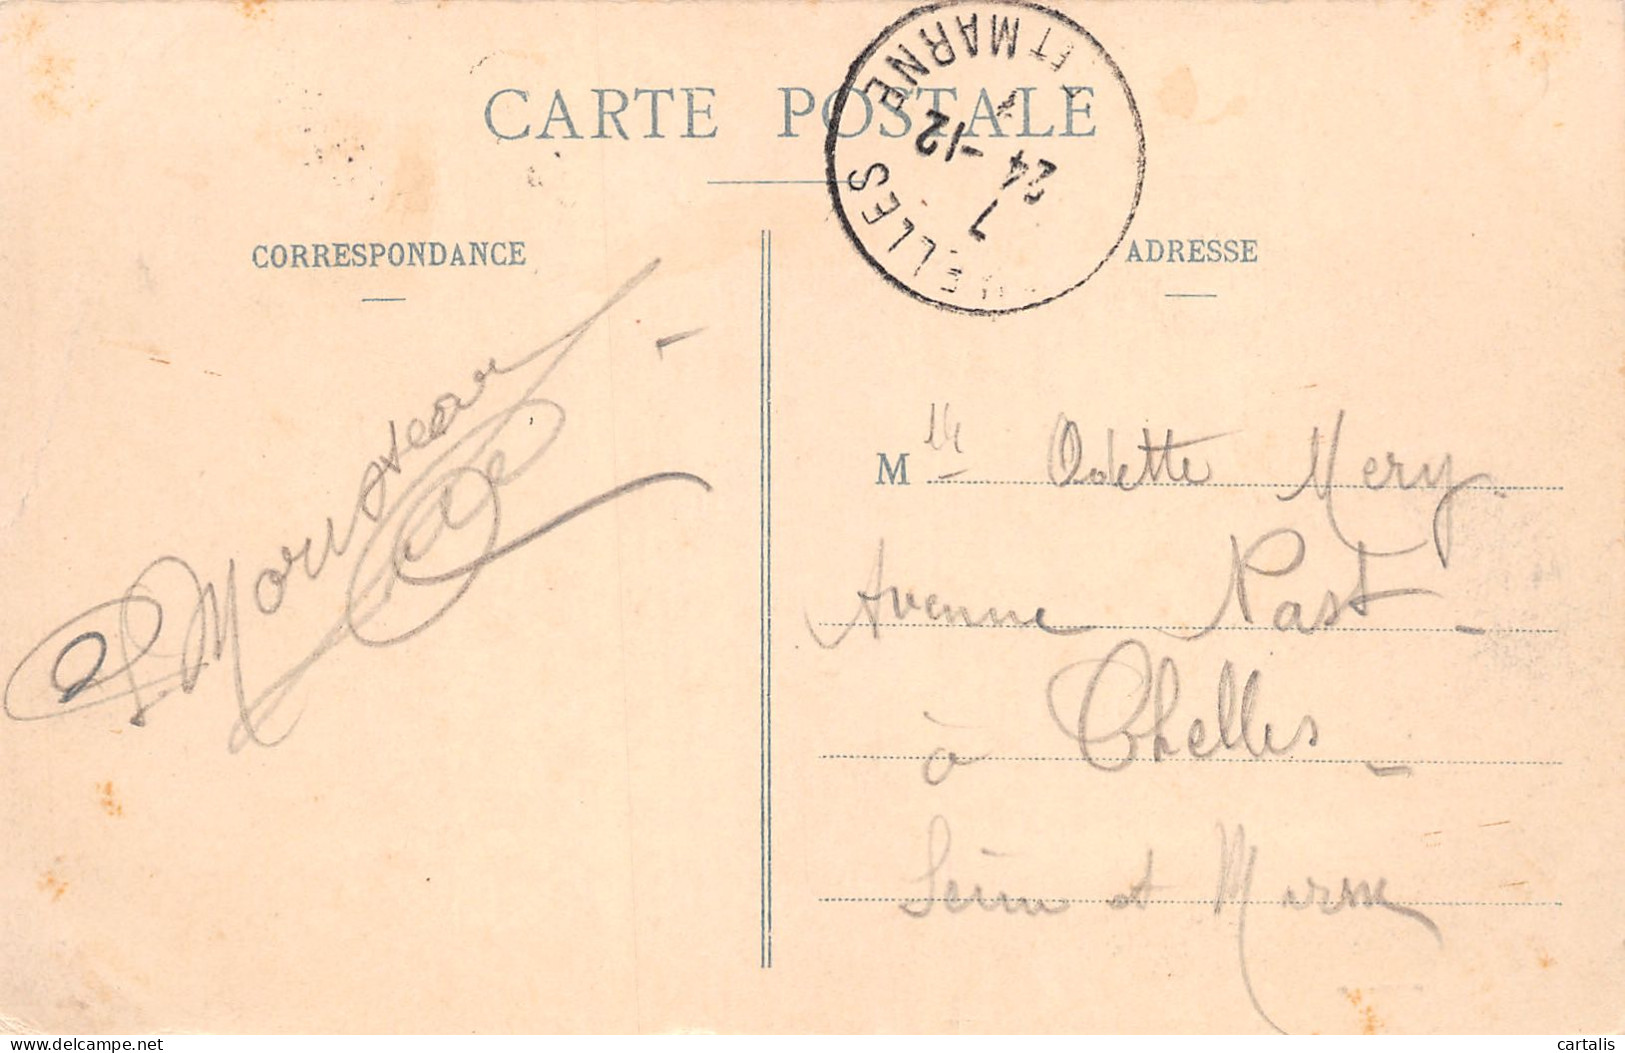 CARTE POSTALE
CHELLES
ET MARNE
7
24 -12
CORRESPONDANCE
ADRESSE
Mlle Odette Mery
Avenue Past
à Chelles
Seine et Marne
cartalis
delcampe.net